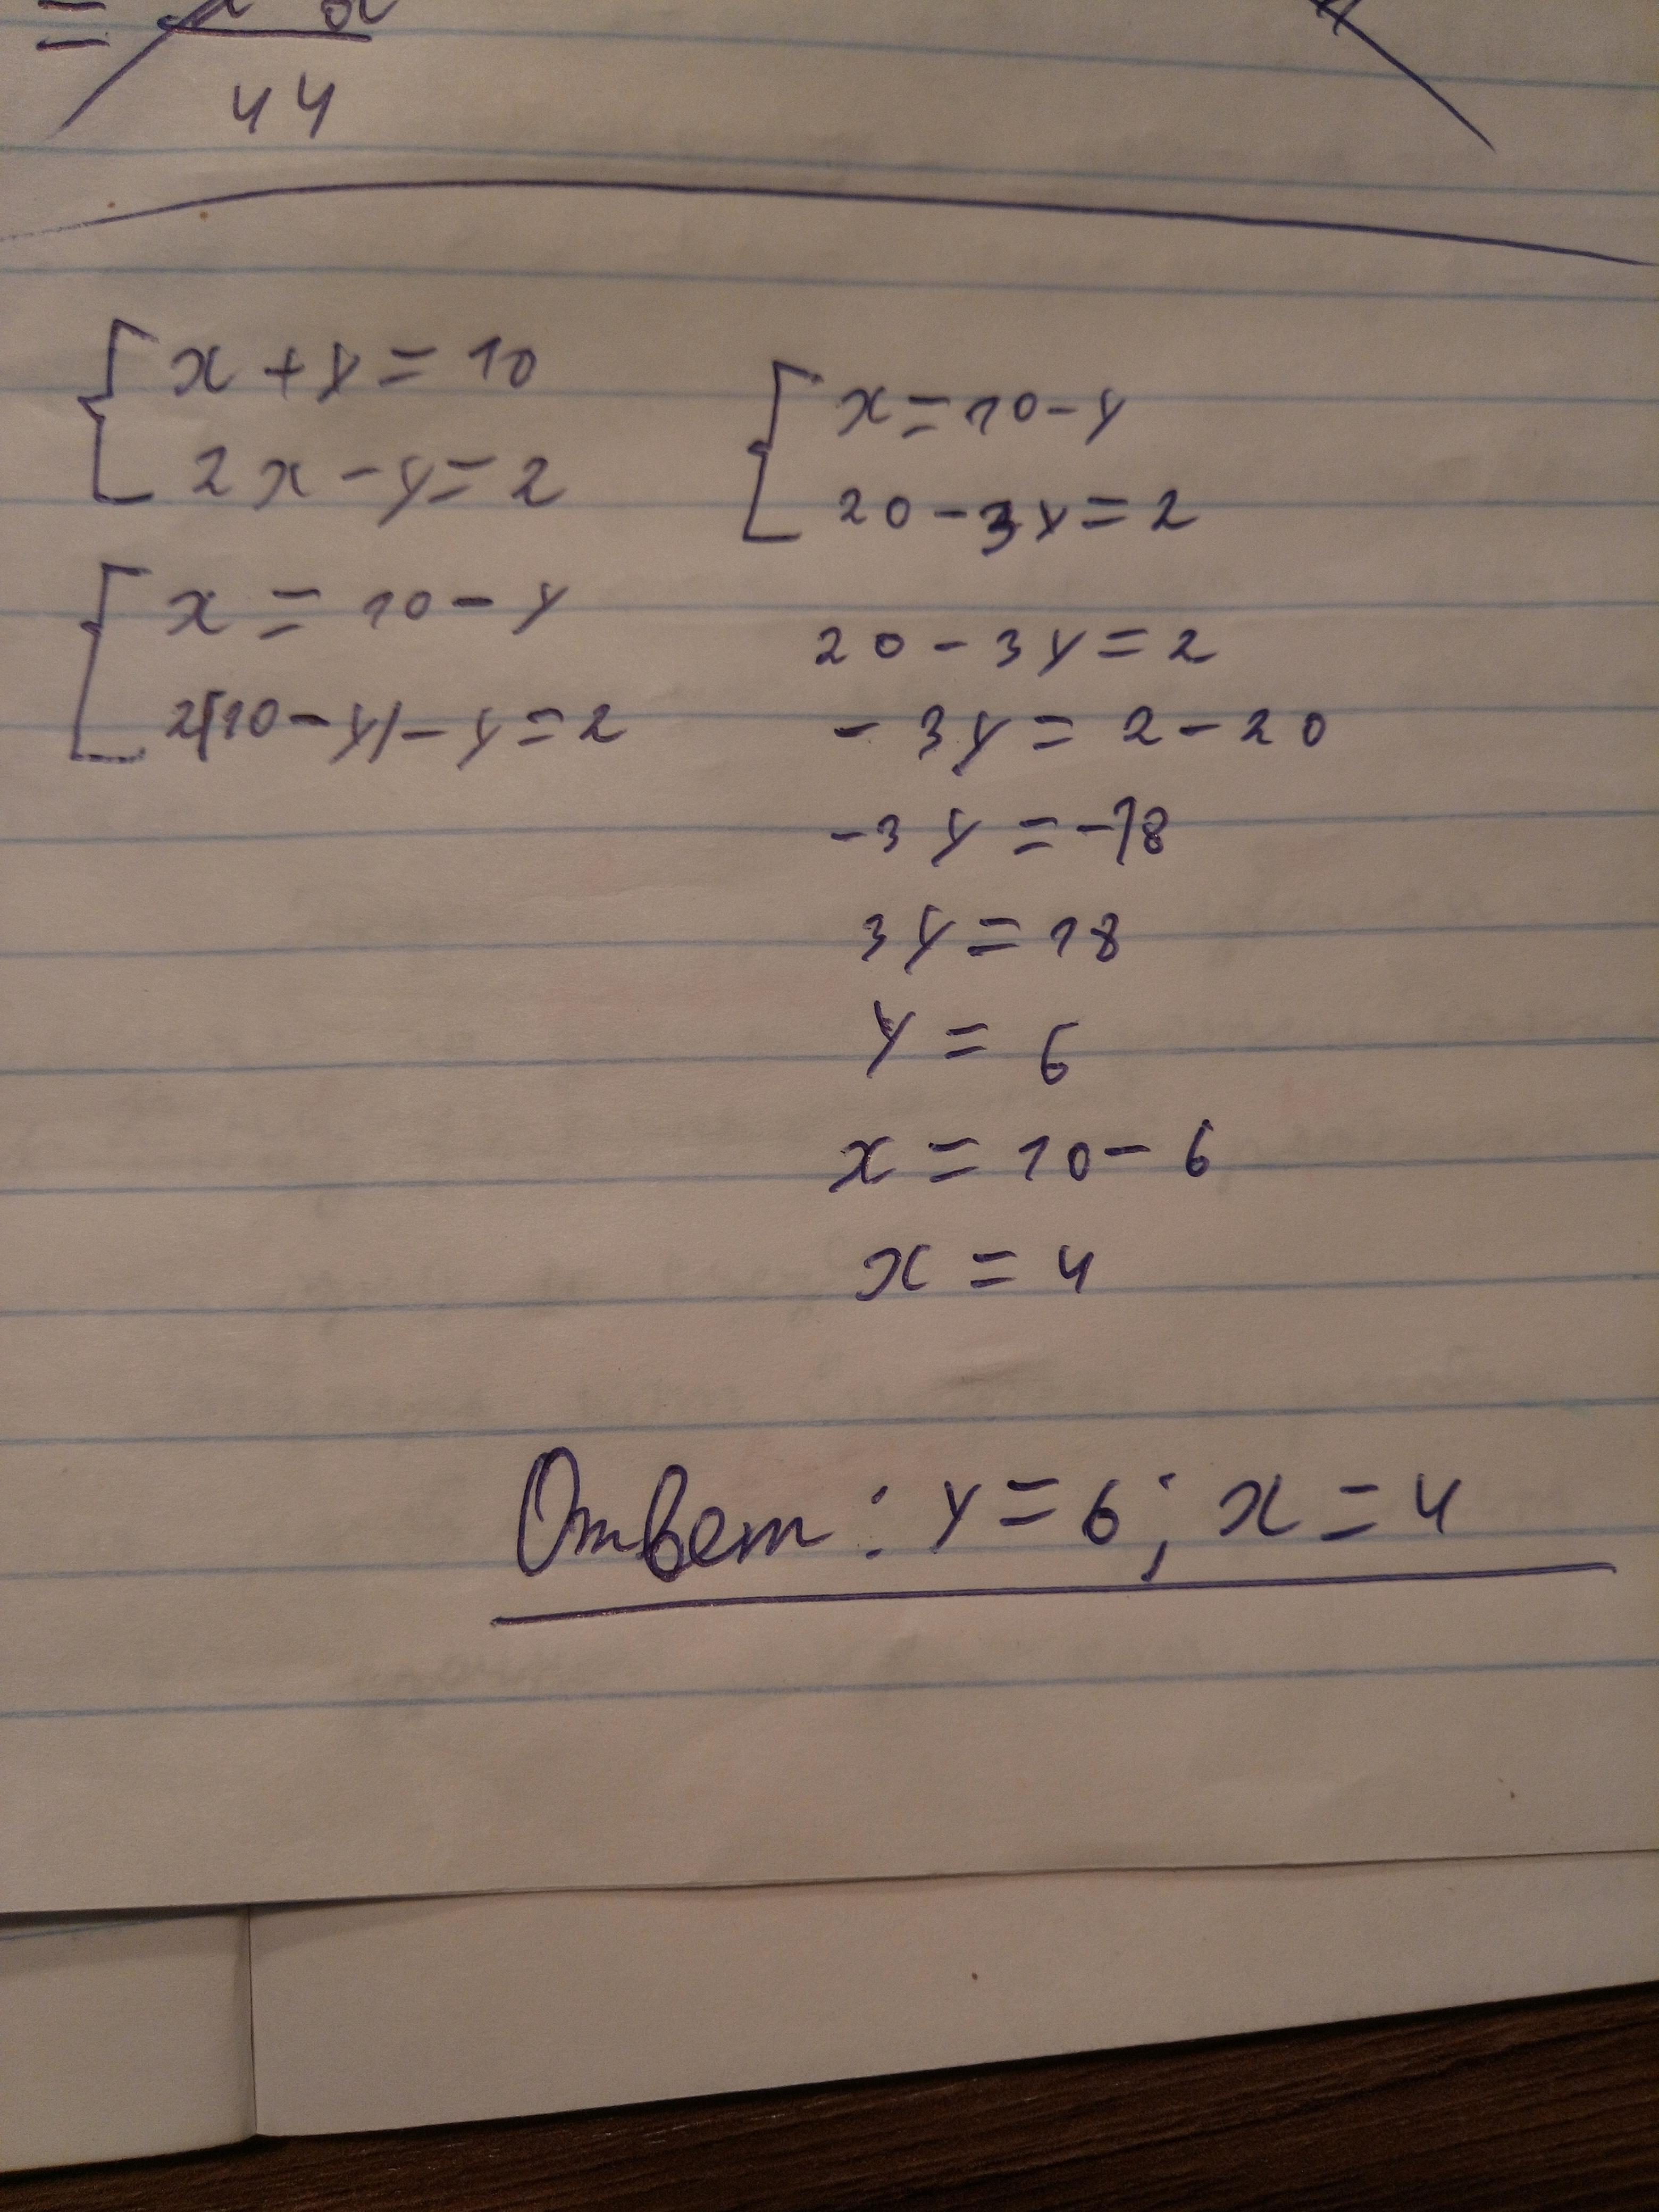 44
x + y = 10
2x - y = 2
x = 10 - y
2(10 - y) - y = 2
x = 10 - y
20 - 3y = 2
20 - 3y = 2
- 3y = 2 - 20
-3y = -18
3y = 18
y = 6
x = 10 - 6
x = 4
Ответ: y = 6; x = 4